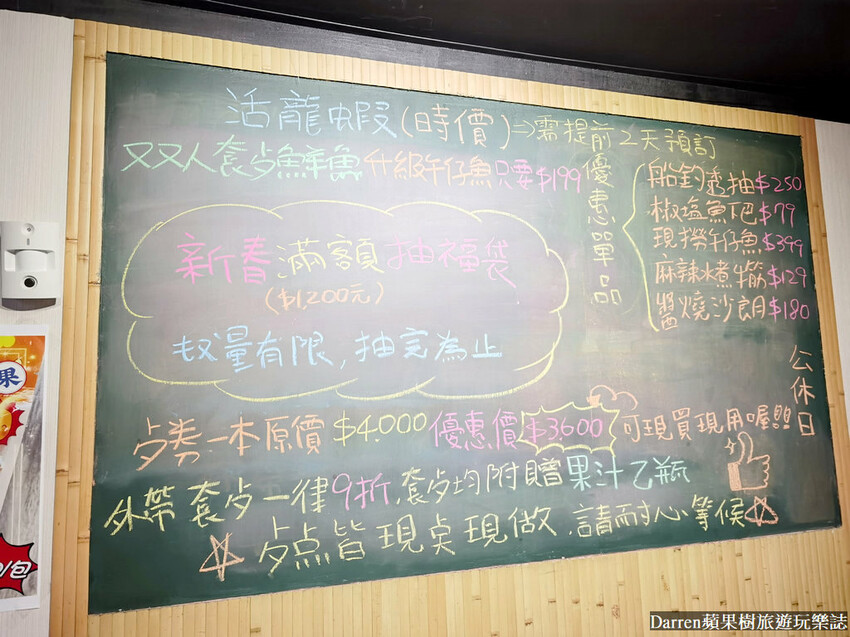 活龍蝦(時價)⇒需提前2天預訂
双双人套歺鮮魚升級午仔魚只要$199
優惠單品
船釣透抽$250
椒塩魚下巴$79
現撈午仔魚$399
麻辣水煮牛筋$129
醬燒沙朗$180
新春滿額抽福袋
($1,200元)
数量有限,抽完為止
公休日
歺券一本原價$4,000優惠價$3,600可現買現用喔!!!
外帶套歺一律9折,套歺均附贈果汁乙瓶
歺点皆現桌現做,請耐心等候
果
/包
Darren蘋果樹旅遊玩樂誌